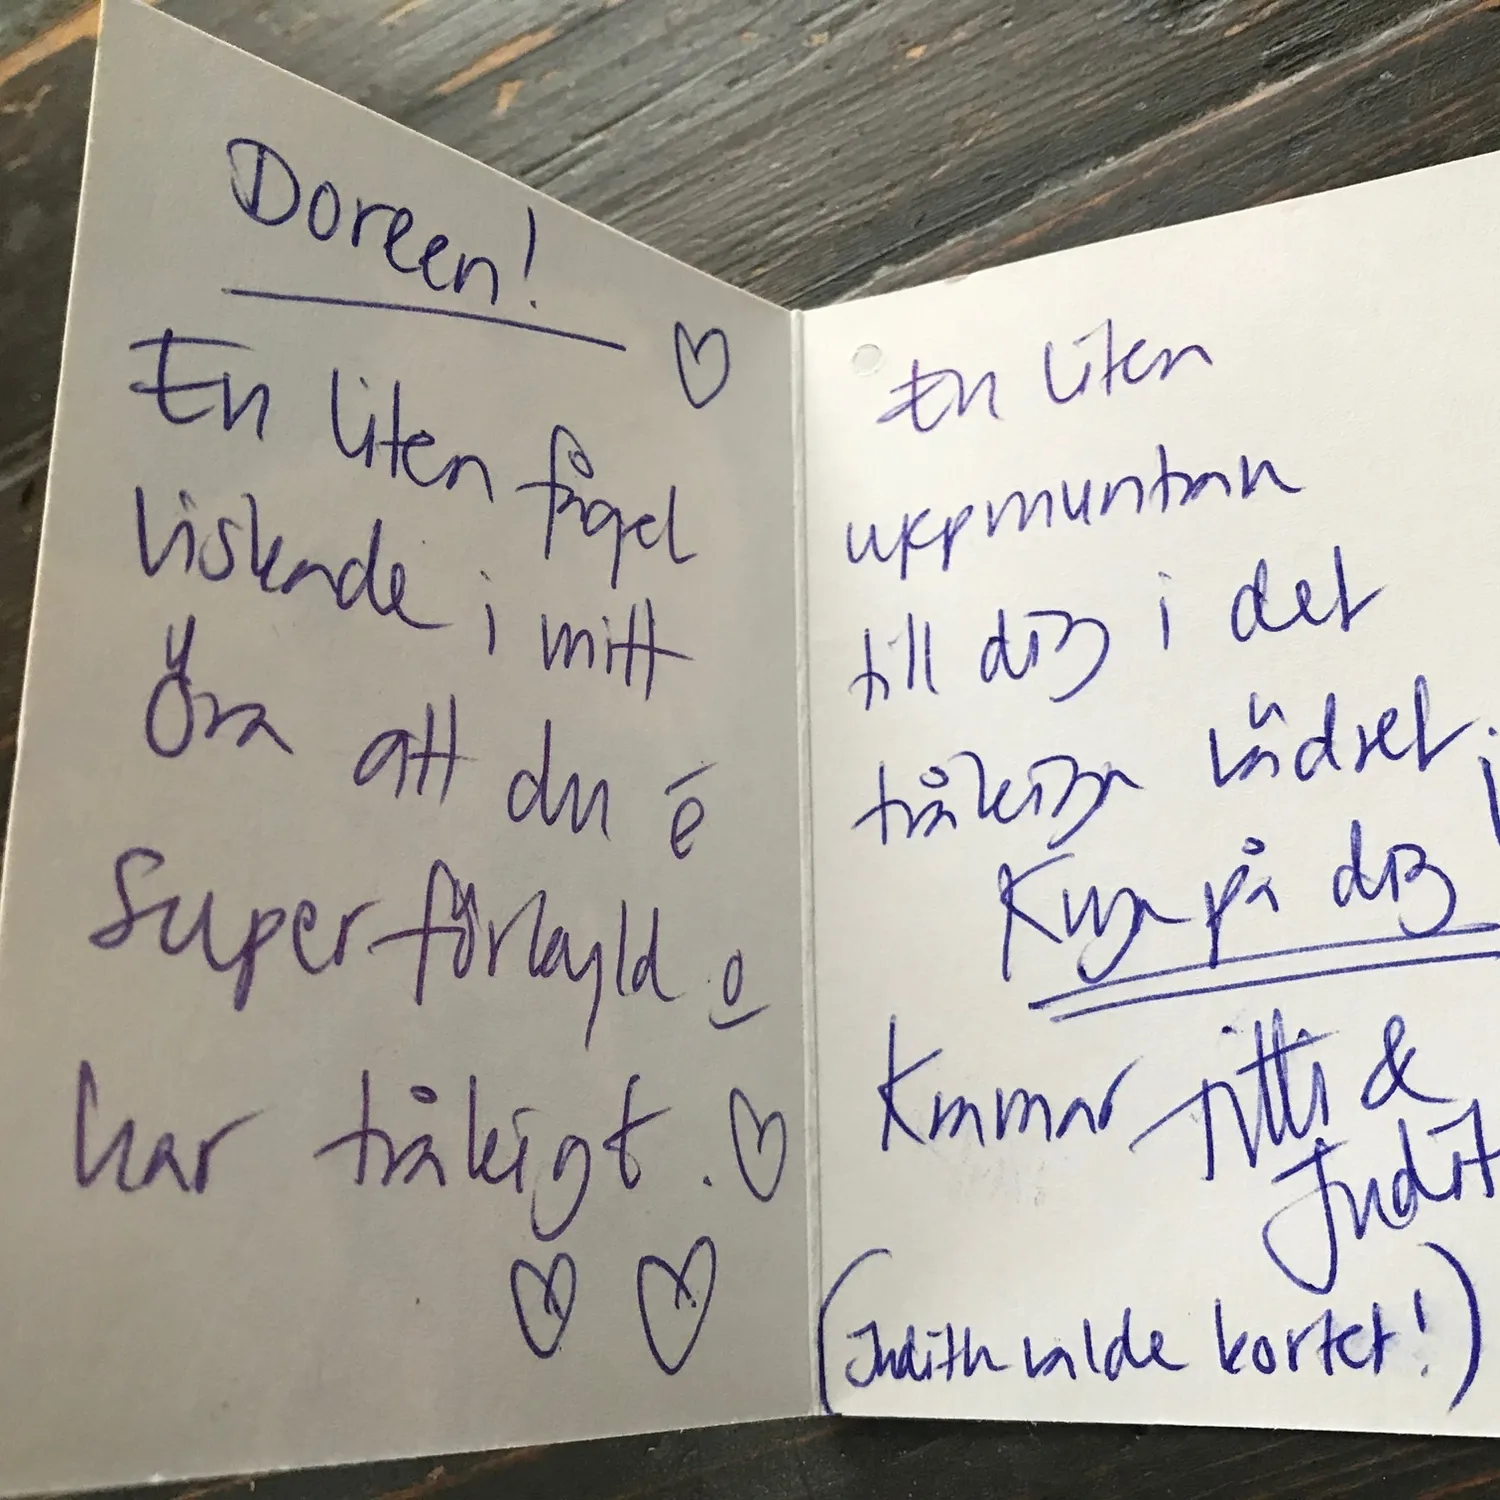 Doreen!
En liten fågel
viskade i mitt
öra att du é
superförkyld o
har tråkigt.
En liten
uppmuntran
till dig i det
tråkiga vädret.
Krya på dig!
Kramar Titti &
Judit
(Judith valde kortet!)